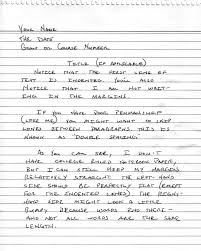 YOUR NAME
THE DATE
GROUP OR COURSE NUMBER
TITLE (IF APPLICABLE)
NOTICE THAT THE FIRST LINE OF
TEXT IS INDENTED. YOU'LL ALSO
NOTICE THAT I AM NOT WRIT-
ING IN THE MARGINS.
IF YOU HAVE POOR PENMANSHIP
(LIKE ME) YOU MIGHT WANT TO SKIP
LINES BETWEEN PARAGRAPHS THIS IS
KNOWN AS DOUBLE SPACING.
AS YOU CAN SEE, I DON'T
HAVE COLLEGE RULED NOTEBOOK PAPER,
BUT I CAN STILL KEEP MY MARGINS
RELATIVELY STRAIGHT. THE LEFT-HAND
SIDE SHOULD BE PERFECTLY FLAT (EXCEPT
FOR THE INDENTED LINES). THE RIGHT
HAND SIDE MIGHT LOOK A LITTLE
BUMPY BECAUSE WORDS END THERE
AND NOT ALL WORDS ARE THE SAME
LENGTH.